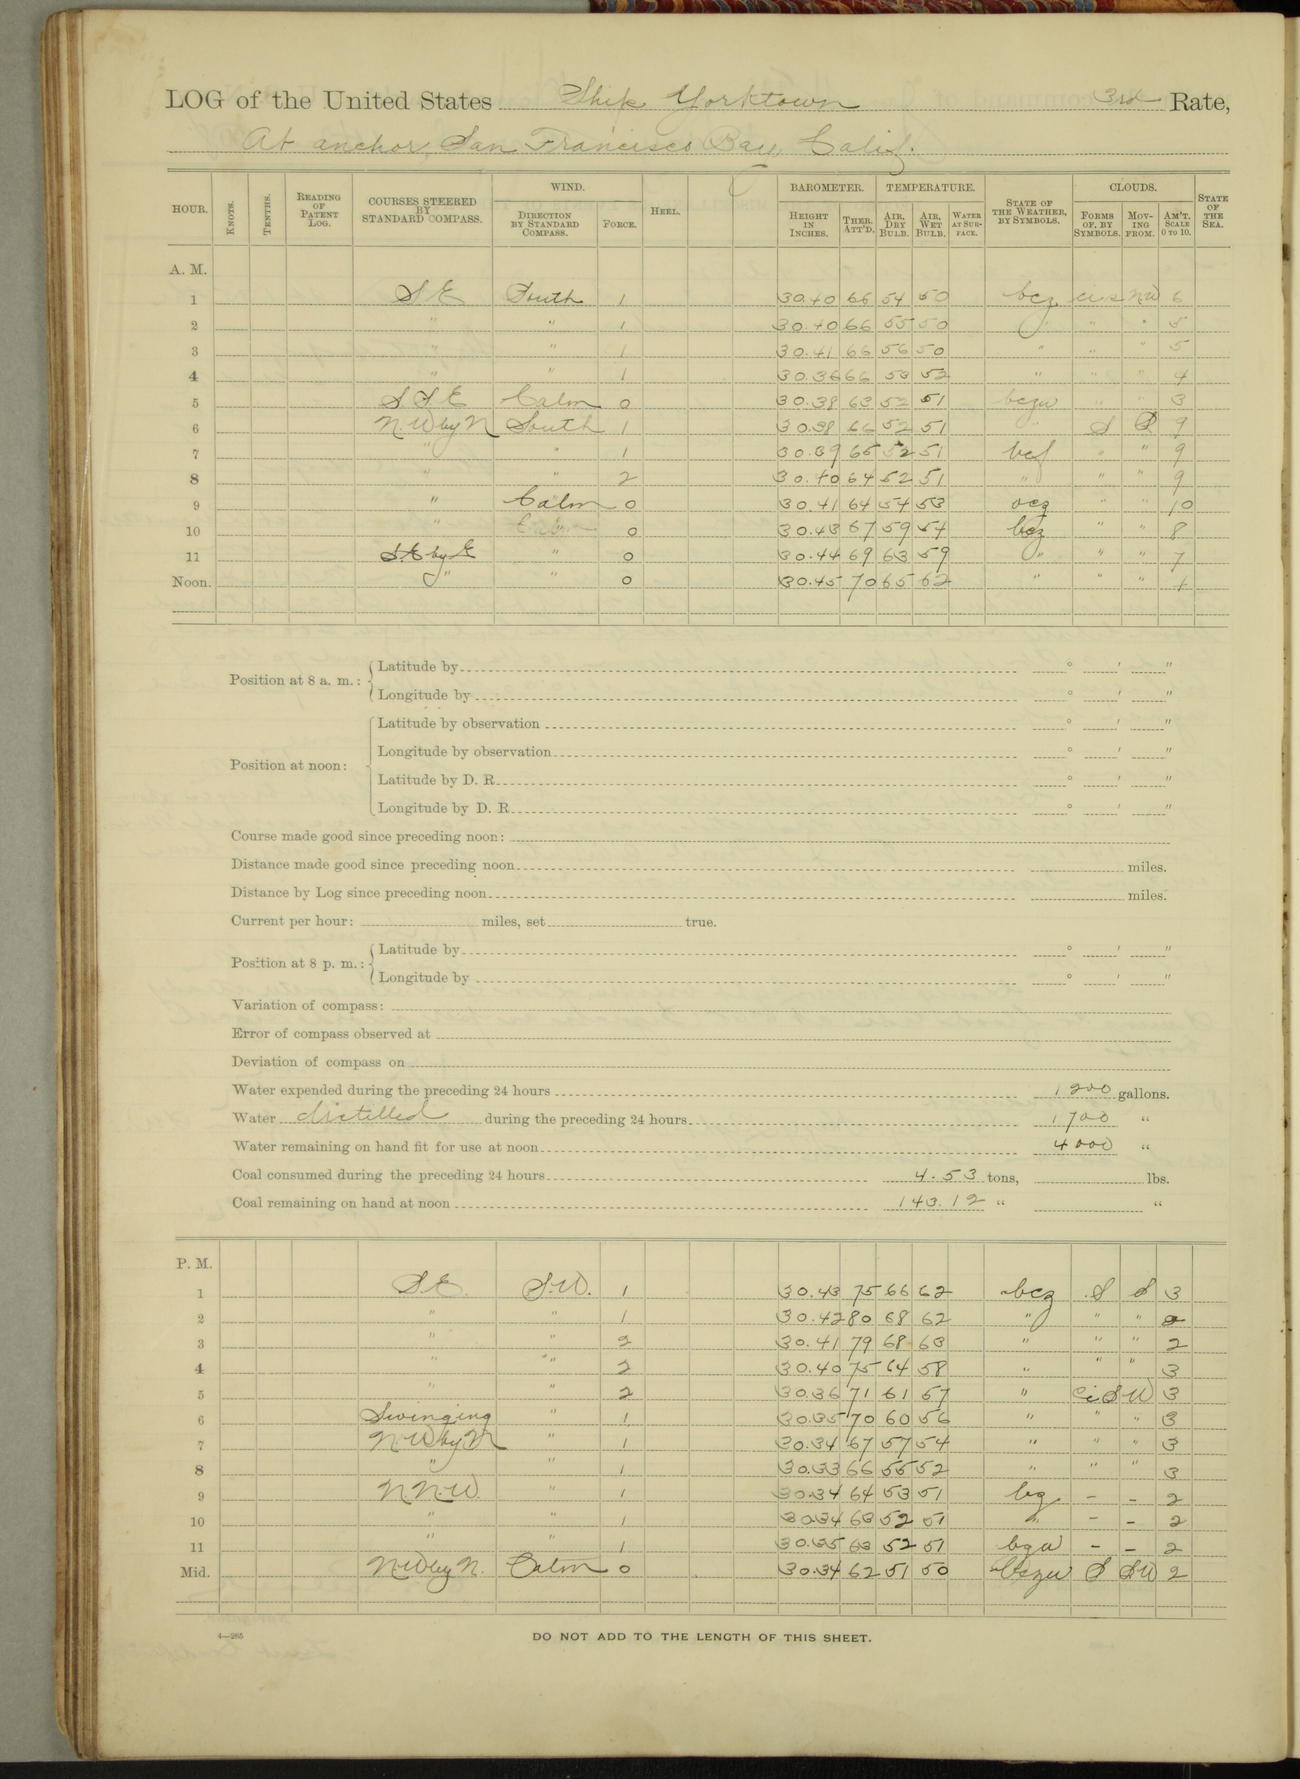 LOG of the United States Ship Yorktown 3rd Rate,
At anchor, San Francisco Bay, Calif.
HOUR. KNOTS. TENTHS. READING OF PATENT LOG. COURSES STEERED BY STANDARD COMPASS. WIND. DIRECTION BY STANDARD COMPASS. FORCE. HEEL. BAROMETER. HEIGHT IN INCHES. THER. ATT'D. TEMPERATURE. AIR, DRY BULB. AIR, WET BULB. WATER AT SURFACE. STATE OF THE WEATHER, BY SYMBOLS. CLOUDS. FORMS OF, BY SYMBOLS. MOVING FROM. AM'T. SCALE 0 TO 10. STATE OF THE SEA.
A. M.
1 S E South 1 30.40 66 54 50 bcz ci s NW 6
2 " " 1 30.40 66 55 50 " " " 5
3 " " 1 30.41 66 56 50 " " " 5
4 " " 1 30.36 66 53 52 " " " 4
5 S S E Calm 0 30.38 63 52 51 bczw " " 3
6 N.W by N South 1 30.38 66 52 51 " S S 9
7 " " 1 30.39 65 52 51 bcf " " 9
8 " " 2 30.40 64 52 51 " " " 9
9 " Calm 0 30.41 64 54 53 ocz " " 10
10 " " 0 30.43 67 59 54 bcz " " 8
11 S.E by E " 0 30.44 69 63 59 " " " 7
Noon. " " 0 30.45 70 65 62 " " "
Position at 8 a. m.: Latitude by ° ' "
Longitude by ° ' "
Position at noon: Latitude by observation ° ' "
Longitude by observation ° ' "
Latitude by D. R. ° ' "
Longitude by D. R. ° ' "
Course made good since preceding noon:
Distance made good since preceding noon miles.
Distance by Log since preceding noon miles.
Current per hour: miles, set true.
Position at 8 p. m.: Latitude by ° ' "
Longitude by ° ' "
Variation of compass:
Error of compass observed at
Deviation of compass on
Water expended during the preceding 24 hours 1200 gallons.
Water distilled during the preceding 24 hours 1700 "
Water remaining on hand fit for use at noon 4000 "
Coal consumed during the preceding 24 hours 4.53 tons, lbs.
Coal remaining on hand at noon 143.12 " "
P. M.
1 S.E. S.W. 1 30.43 75 66 62 bcz S S 3
2 " " 1 30.42 80 68 62 " " "
3 " " 2 30.41 79 68 63 " " " 2
4 " " 2 30.40 75 64 58 " " " 3
5 " " 2 30.36 71 61 57 " Ci S W 3
6 Swinging " 1 30.35 70 60 56 " " " 3
7 N.W by N " 1 30.34 67 57 54 " " " 3
8 " " 1 30.33 66 55 52 " " " 3
9 N.N.W. " 1 30.34 64 53 51 bz – – 2
10 " " 1 30.34 63 52 51 " – – 2
11 " " 1 30.35 63 52 51 bzw – – 2
Mid. N.W by N. Calm 0 30.34 62 51 50 bczw S SW 2
4—265
DO NOT ADD TO THE LENGTH OF THIS SHEET.